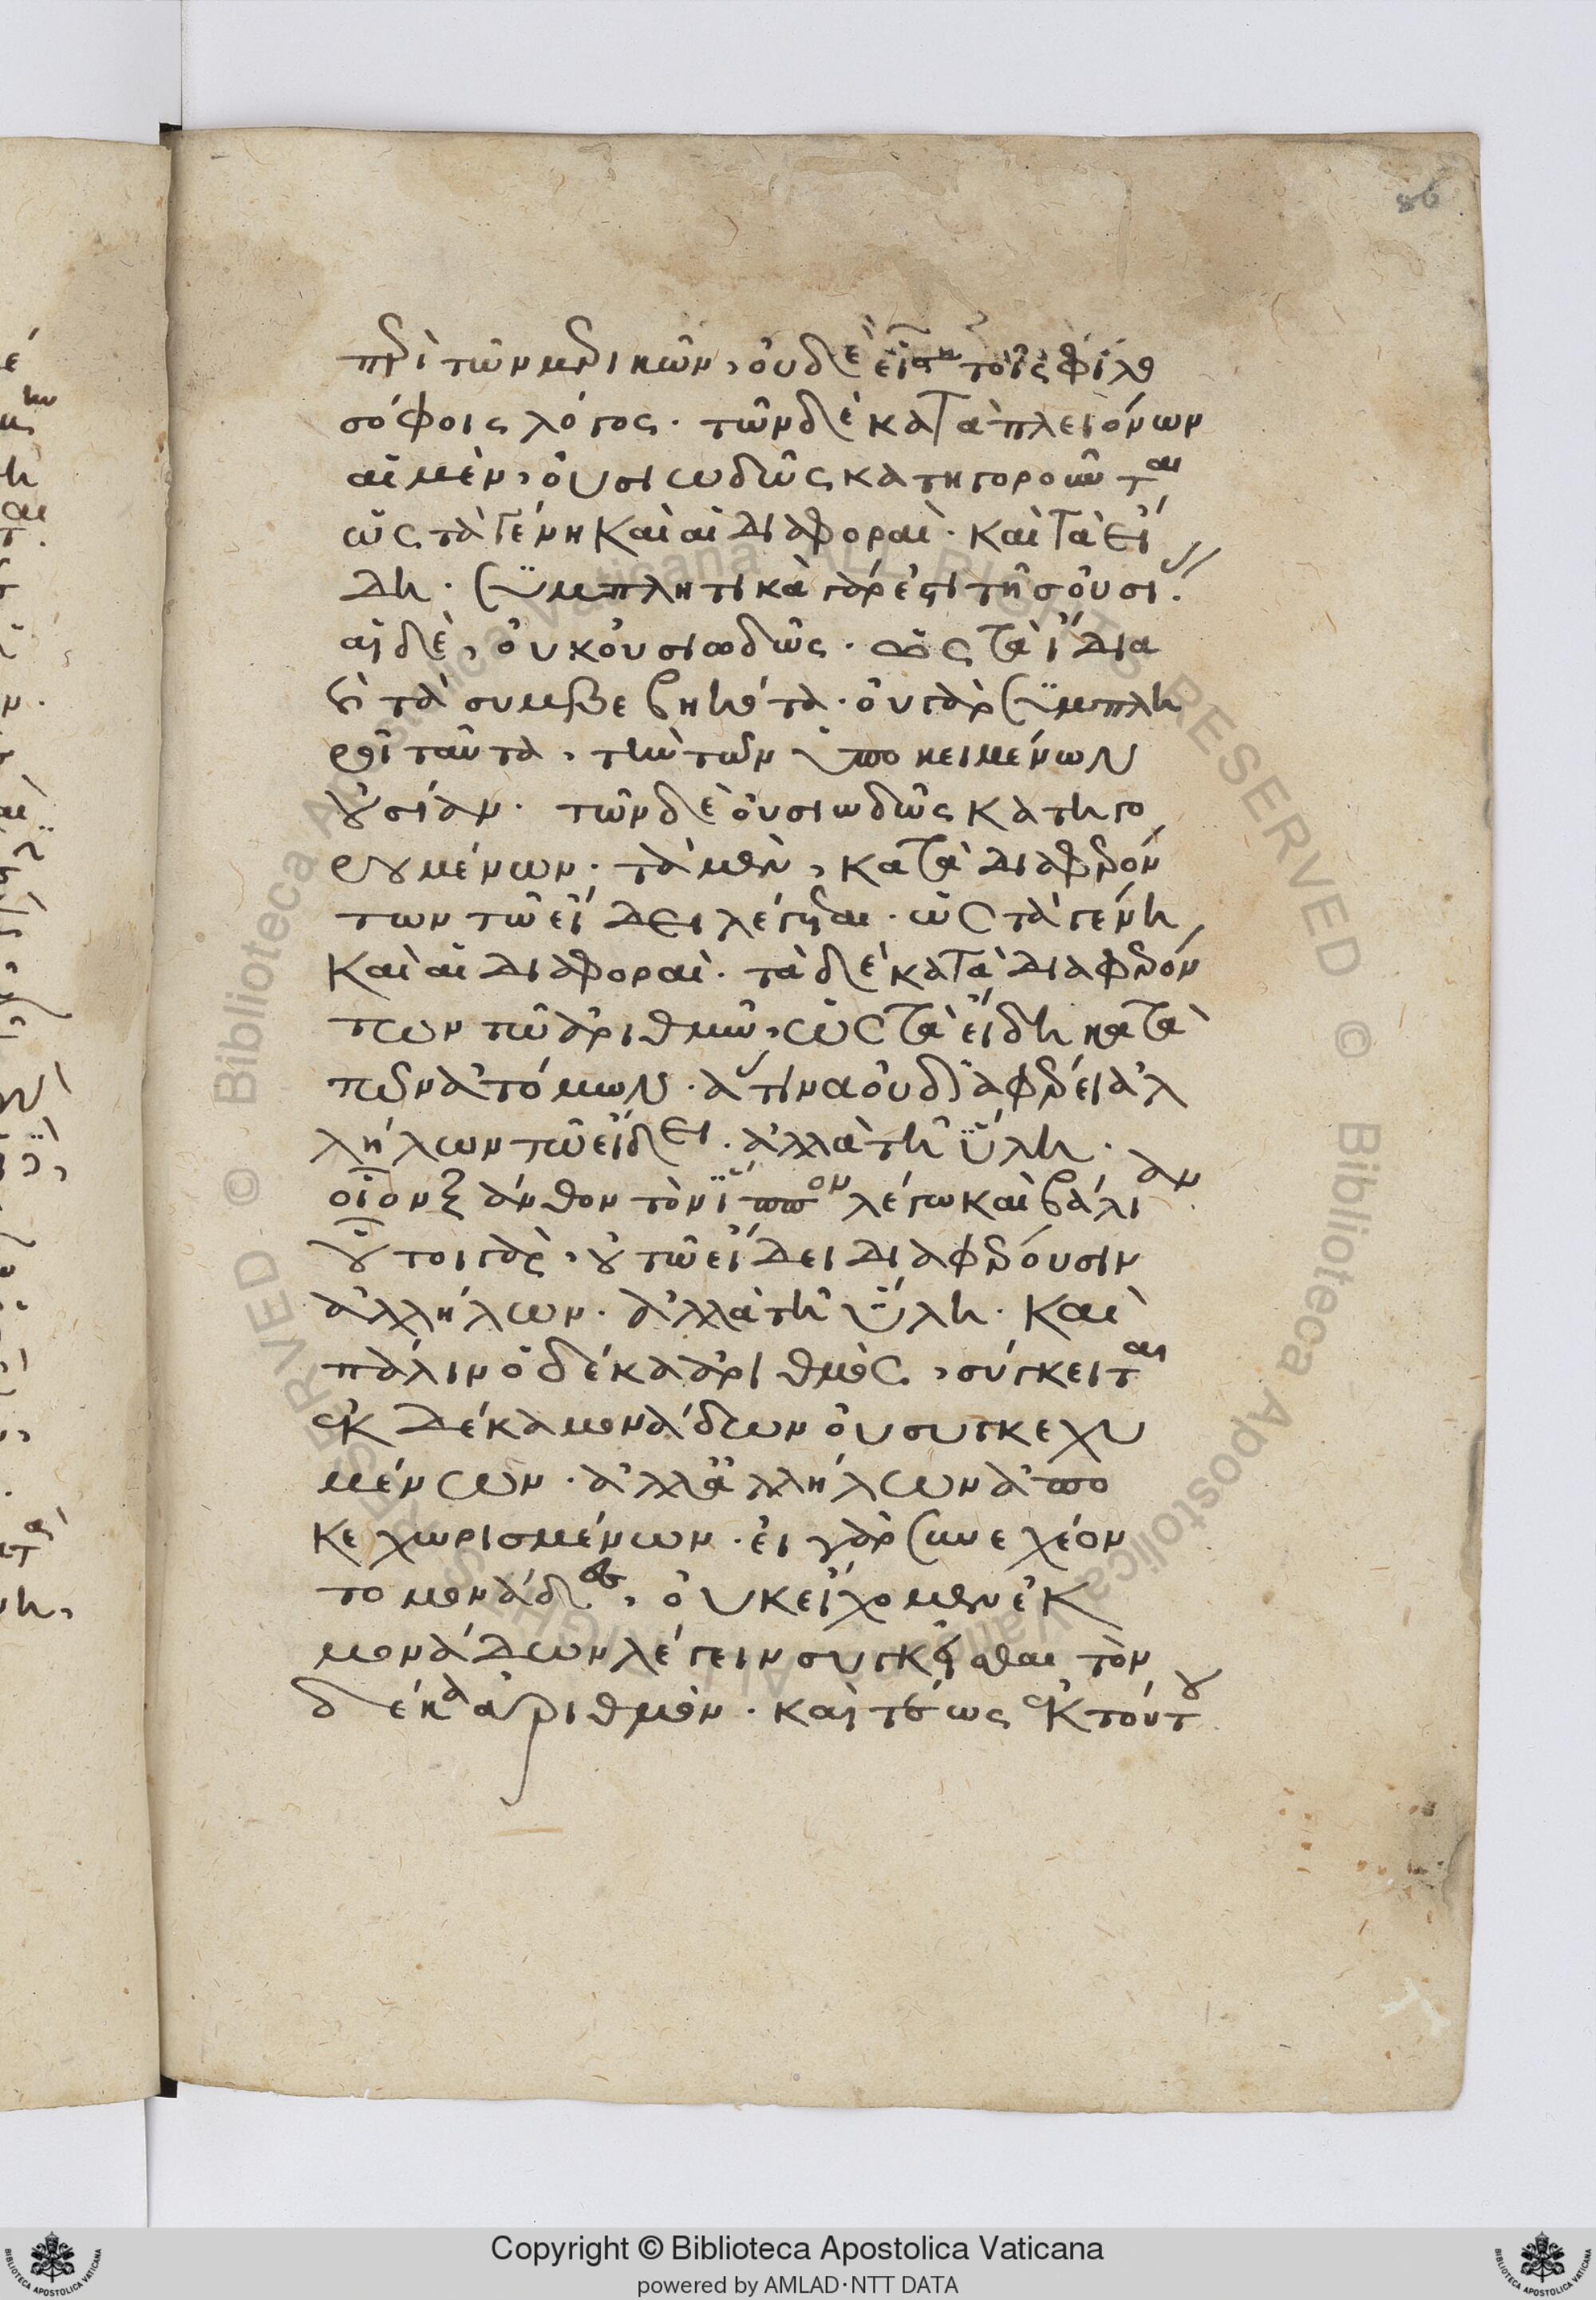 86
περὶ τῶν μερικῶν, οὐδὲ εἷς ἐστι τοῖς φιλο
σόφοις λόγος. τῶν δὲ κατὰ πλειόνων
αἱ μὲν, οὐσιωδῶς κατηγοροῦνται
ὡς τὰ γένη καὶ αἱ διαφοραὶ. καὶ τὰ εἴ
δη. συμπληρωτικὰ γάρ ἐστι τῆς οὐσί.
αἱ δὲ, οὐκ οὐσιωδῶς. ὡς τὰ ἴδια
καὶ τὰ συμβεβηκότα. οὐ γὰρ συμπλη
ροῖ ταῦτα, τὴν τῶν ὑποκειμένων
οὐσίαν. τῶν δὲ οὐσιωδῶς κατηγο
ρουμένων. τὰ μὲν, κατὰ διαφερόν
των τῷ εἴδει λέγεται. ὡς τὰ γένη
καὶ αἱ διαφοραὶ. τὰ δὲ κατὰ διαφερόν
των τῷ ἀριθμῷ, ὡς τὰ εἴδη κατὰ
τῶν ἀτόμων. ἅτινα οὐ διαφέρει ἀλ
λήλων τῷ εἴδει. ἀλλὰ τῇ ὕλῃ.
οἷον ξάνθον τὸν ἵππον λέγω καὶ βαλίαν.
οὗτοι γὰρ, οὐ τῷ εἴδει διαφέρουσιν
ἀλλήλων. ἀλλὰ τῇ ὕλῃ. καὶ
πάλιν ὁ δέκα ἀριθμὸς, σύγκειται
ἐκ δέκα μονάδων οὐ συγκεχυ
μένων. ἀλλ' ἀλλήλων ἀπο
κεχωρισμένων. εἰ γὰρ συνεχέον
το μονάδες, οὐκ εἴχομεν ἐκ
μονάδων λέγειν συγκεῖσθαι τὸν
δέκα ἀριθμὸν. καὶ ἴσως ἐκ τούτου
Copyright © Biblioteca Apostolica Vaticana
powered by AMLAD·NTT DATA